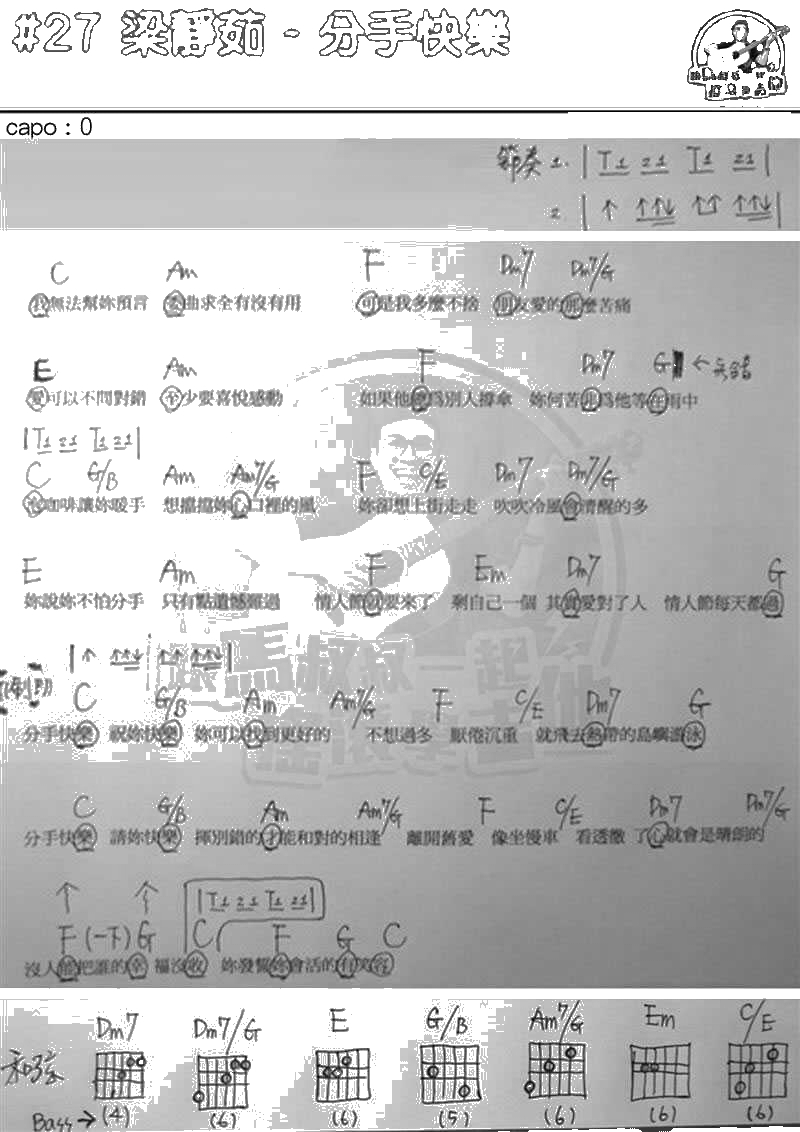 #27 梁靜茹 - 分手快樂
capo : 0
節奏 1. | T1 21 T1 21 |
2. | ↑ ↑↑↓ ↑↑ ↑↑↓ |
C Am F Dm7 Dm7/G
我無法幫妳預言 委曲求全有沒有用 可是我多麼不捨 朋友愛的那麼苦痛
E Am F Dm7 G
愛可以不問對錯 至少要喜悅感動 如果他總為別人撐傘 妳何苦非為他等在雨中
| T1 21 T1 21 |
C G/B Am Am7/G F C/E Dm7 Dm7/G
泡咖啡讓妳暖手 想擋擋妳心口裡的風 妳卻想上街走走 吹吹冷風會清醒的多
E Am F Em Dm7 G
妳說妳不怕分手 只有點遺憾難過 情人節就要來了 剩自己一個 其實愛對了人 情人節每天都過
| ↑ ↑↑↓ ↑↑ ↑↑↓ |
C G/B Am Am7/G F C/E Dm7 G
分手快樂 祝妳快樂 妳可以找到更好的 不想過冬 厭倦沉重 就飛去熱帶的島嶼游泳
跟馬叔叔一起搖滾學吉他
C G/B Am Am7/G F C/E Dm7 Dm7/G
分手快樂 請妳快樂 揮別錯的才能和對的相逢 離開舊愛 像坐慢車 看透徹了心就會是晴朗的
↑ ↑ | T1 21 T1 21 |
F (一下) G C F G C
沒人能把誰的幸福沒收 妳發誓妳會活的有笑容
Dm7 Dm7/G E G/B Am7/G Em C/E
和弦
Bass → (4) (6) (6) (5) (6) (6) (6)